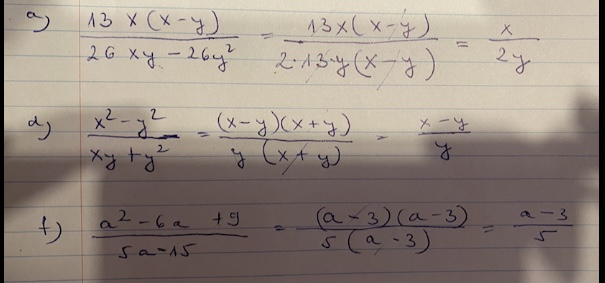 a) 13x(x-y) / 26xy - 26y² = 13x(x-y) / 2·13·y(x-y) = x / 2y
d) x² - y² / xy + y² = (x-y)(x+y) / y(x+y) = x-y / y
f) a² - 6a + 9 / 5a - 15 = (a-3)(a-3) / 5(a-3) = a-3 / 5